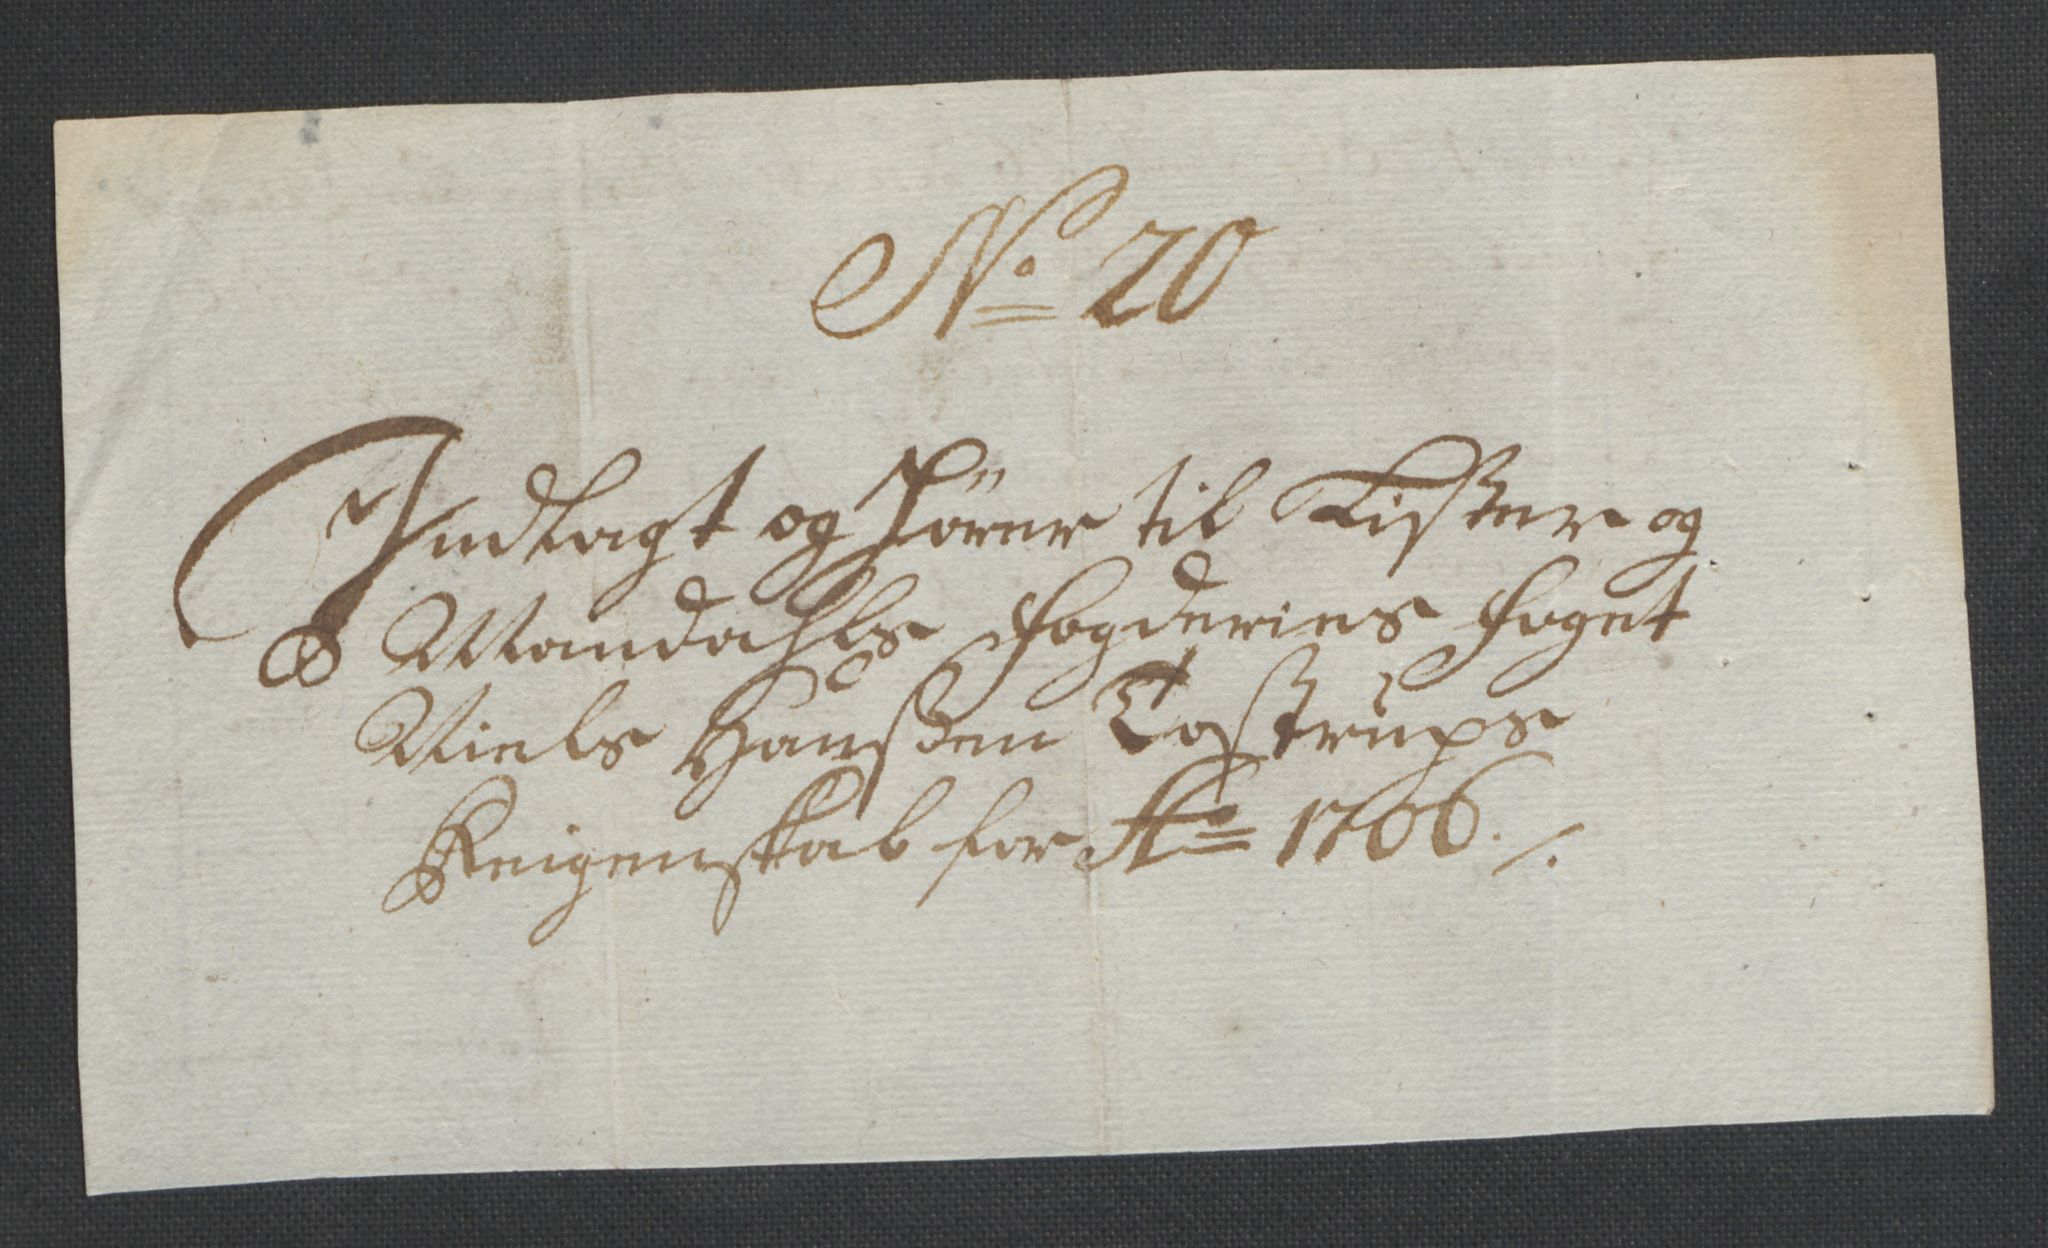 No 20
Indlagt og Hörer til Lister og
Mandahls fogderies foget
Niels Hanßen Tostrups
Reigenskab for Ao 1706 ./.